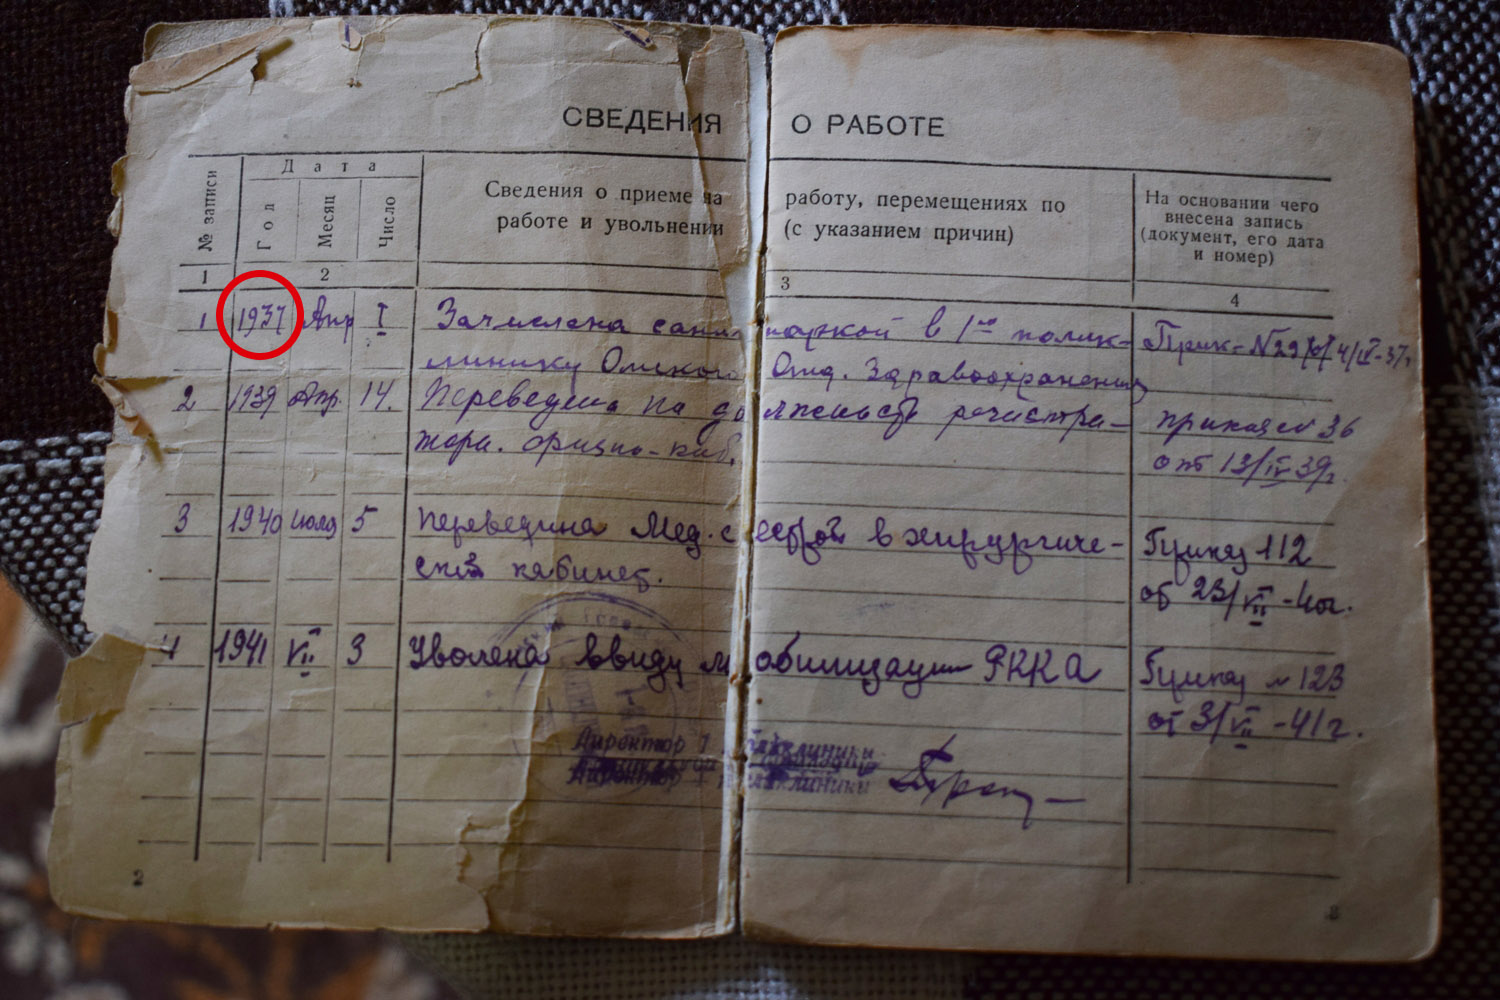 СВЕДЕНИЯ О РАБОТЕ
№ записи
Дата
Год
Месяц
Число
Сведения о приеме на работу, перемещениях по
работе и увольнении (с указанием причин)
На основании чего
внесена запись
(документ, его дата
и номер)
1 2 3 4
1 1937 Апр I Зачислена в 1ую поли-
клинику Омского Отд. Здравоохранения
2 1939 Апр. 14. Переведена на должность регистра-
тора. физио-каб.
приказ № 36
от 13/IV 39г.
3 1940 5 переведена Мед. сестрой в хирургиче-
ский кабинет.
Приказ 112
от 23/VII-40г.
4 1941 VII 3 Уволена ввиду мобилизации РККА
Приказ № 123
от 3/VII-41г.
Директор 1 поликлиники
Директор поликлиники
2
3